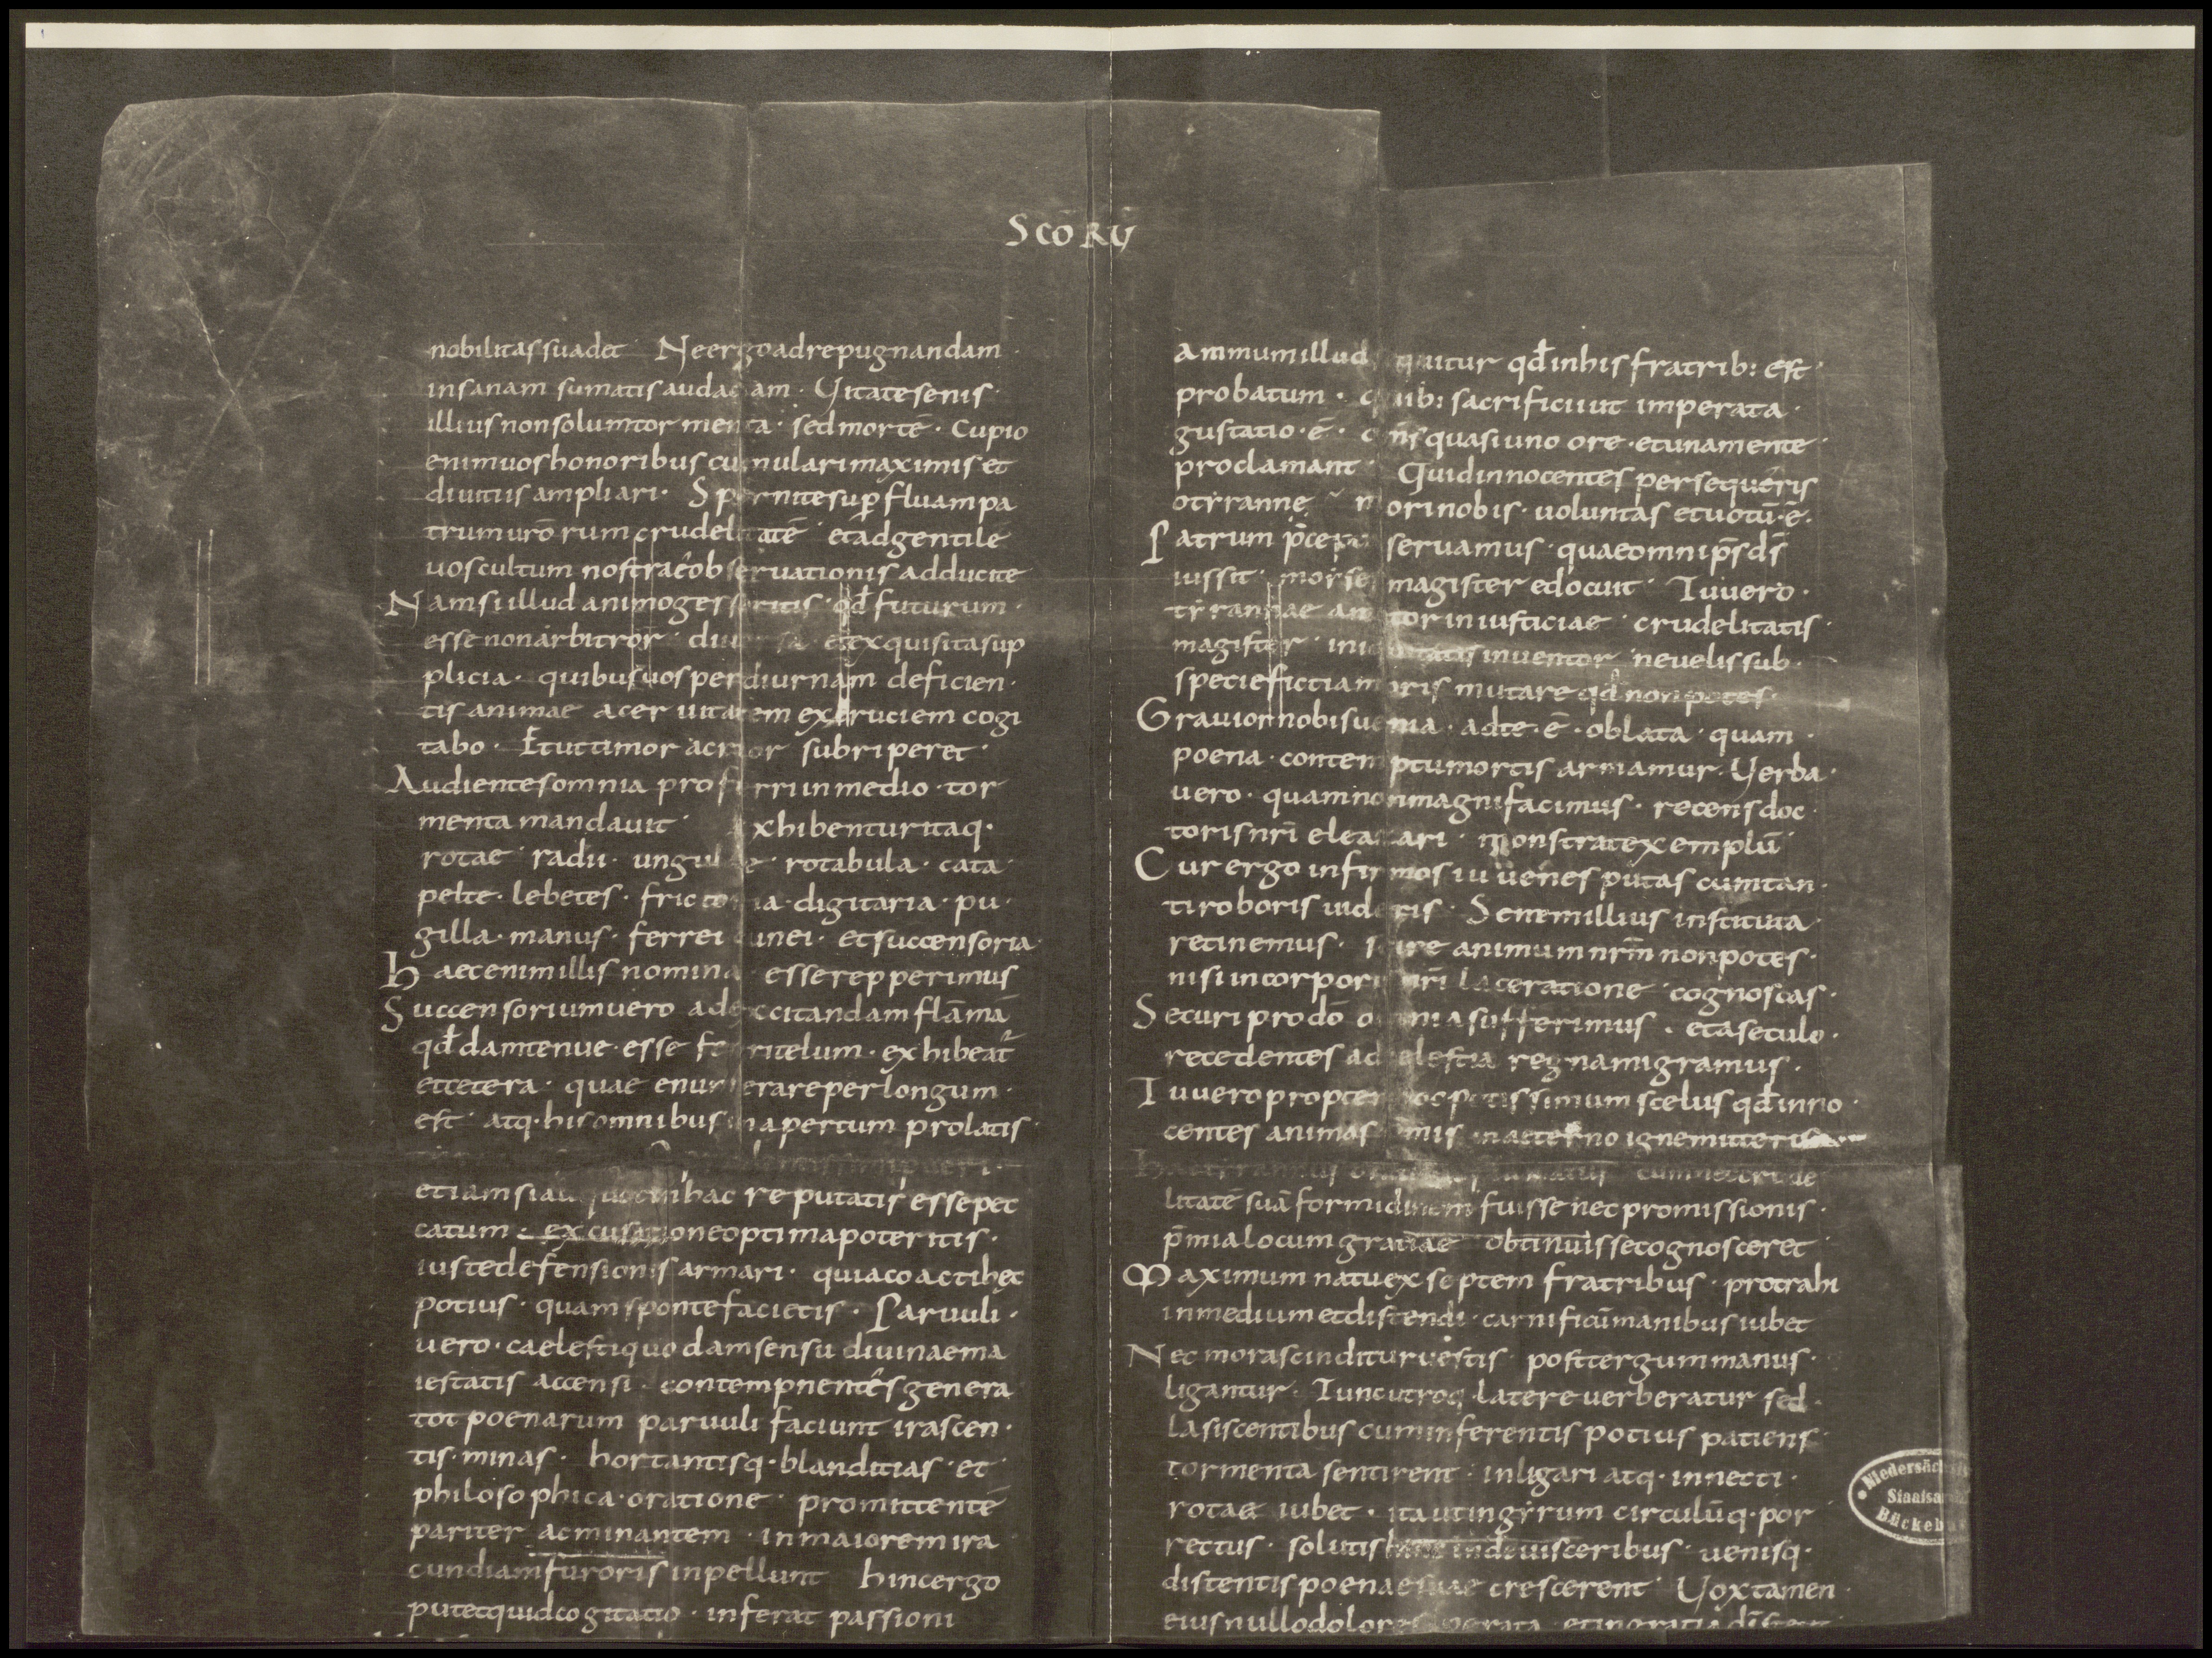 Scōrū
nobilitas suadet Ne ergo ad repugnandam
insanam sumatis audaciam · Vitate senis
illius non solum tormenta · sed mortē · Cupio
enim uos honoribus cumulari maximis et
diuitiis ampliari · Spernite sup fluam pa
trum urōrum crudelitatē et ad gentilē
uos cultum nostrae obseruationis adducite
Nam si illud animo gesseritis · qđ futurum ·
esse non arbitror · diuersa et exquisita sup
plicia · quibus uos per diurnam deficien ·
tis animae aceruitatem excruciem cogi
tabo · Et ut timor acrior subriperet ·
Audientes omnia proferri in medio · tor
menta mandauit exhibentur itaq ·
rotae radii · ungulae · rotabula · cata
pelte · lebetes · frictoria · digitaria · pu ·
gilla · manus · ferrei cunei · et succensoria
Haec enim illis nomina esse repperimus
Succensorium uero ad excitandam flāmā
qđ dam tenue · esse ferri telum · exhibeat̄
et cetera · quae enumerare per longum ·
est atq · his omnibus in apertum prolatis ·
pueri ·
etiam si hac reputatis esse pec
catum · excusatione optima poteritis ·
iuste defensionis armari · quia coacti hec
potius · quam sponte facietis · Paruuli ·
uero · caelesti quodam sensu diuinae ma
iestatis accensi · contempnentes genera
tot poenarum paruuli faciunt irascen ·
tis · minas · hortantisq · blanditias · et
philosophica · oratione · promittentē
pariter ac minantem · in maiorem ira
cundiam furoris inpellunt hinc ergo
putet quid cogitatio · inferat passioni
Ammum illud sequitur qđ in his fratrib: est
probatum · quib: sacrificii ut imperata ·
gustatio · ē · om̄s quasi uno ore · et una mente ·
proclamant Quid innocentes persequeris
o tyranne mori nobis · uoluntas et uotū · ē ·
Patrum p̄cepta seruamus · quae omnip̄s d̄s
iussit moyses magister edocuit Tu uero ·
tyrannae amator iniusticiae · crudelitatis ·
magister · iniquitatis inuentor ne uelis sub ·
specie ficti amoris mutare qđ non potes ·
Grauior nobis uenia · ad te · ē · oblata · quam ·
poena · contemptu mortis armamur · Verba ·
uero · quam non magni facimus · recens doc ·
toris nr̄i eleazari · monstrat exemplū
Cur ergo infirmos iuuenes putas cum tan ·
ti roboris uidetis · Senem illius instituta
retinemus · scire animum nrm̄ non potes ·
nisi in corporis nr̄i laceratione cognoscas ·
Securi pro dō omnia sufferimus · et a seculo ·
recedentes ad celestia regna migramus ·
Tu uero propter hoc potissimum scelus qđ inno ·
centes animas in aeterno igne mitteris
Haec tyrannus cum nec crude
litatē suā formidinem fuisse nec promissionis ·
p̄mia locum gratiae obtinuisse cognosceret
Maximum natu ex septem fratribus · protrahi
in medium et distendi · carnificū manibus iubet
Nec mora scinditur uestis post tergum manus ·
ligantur · Tunc utroq · latere uerberatur sed ·
lasiscentibus cum inferentis potius patiens ·
tormenta sentirent · inligari atq · innecti ·
rotae iubet · ita ut in gyrum circulūq · por
rectus · solutis uisceribus · uenisq ·
distentis poenae suae crescerent Vox tamen ·
eius nullo dolore
Niedersächs
Staatsar
Bückeb